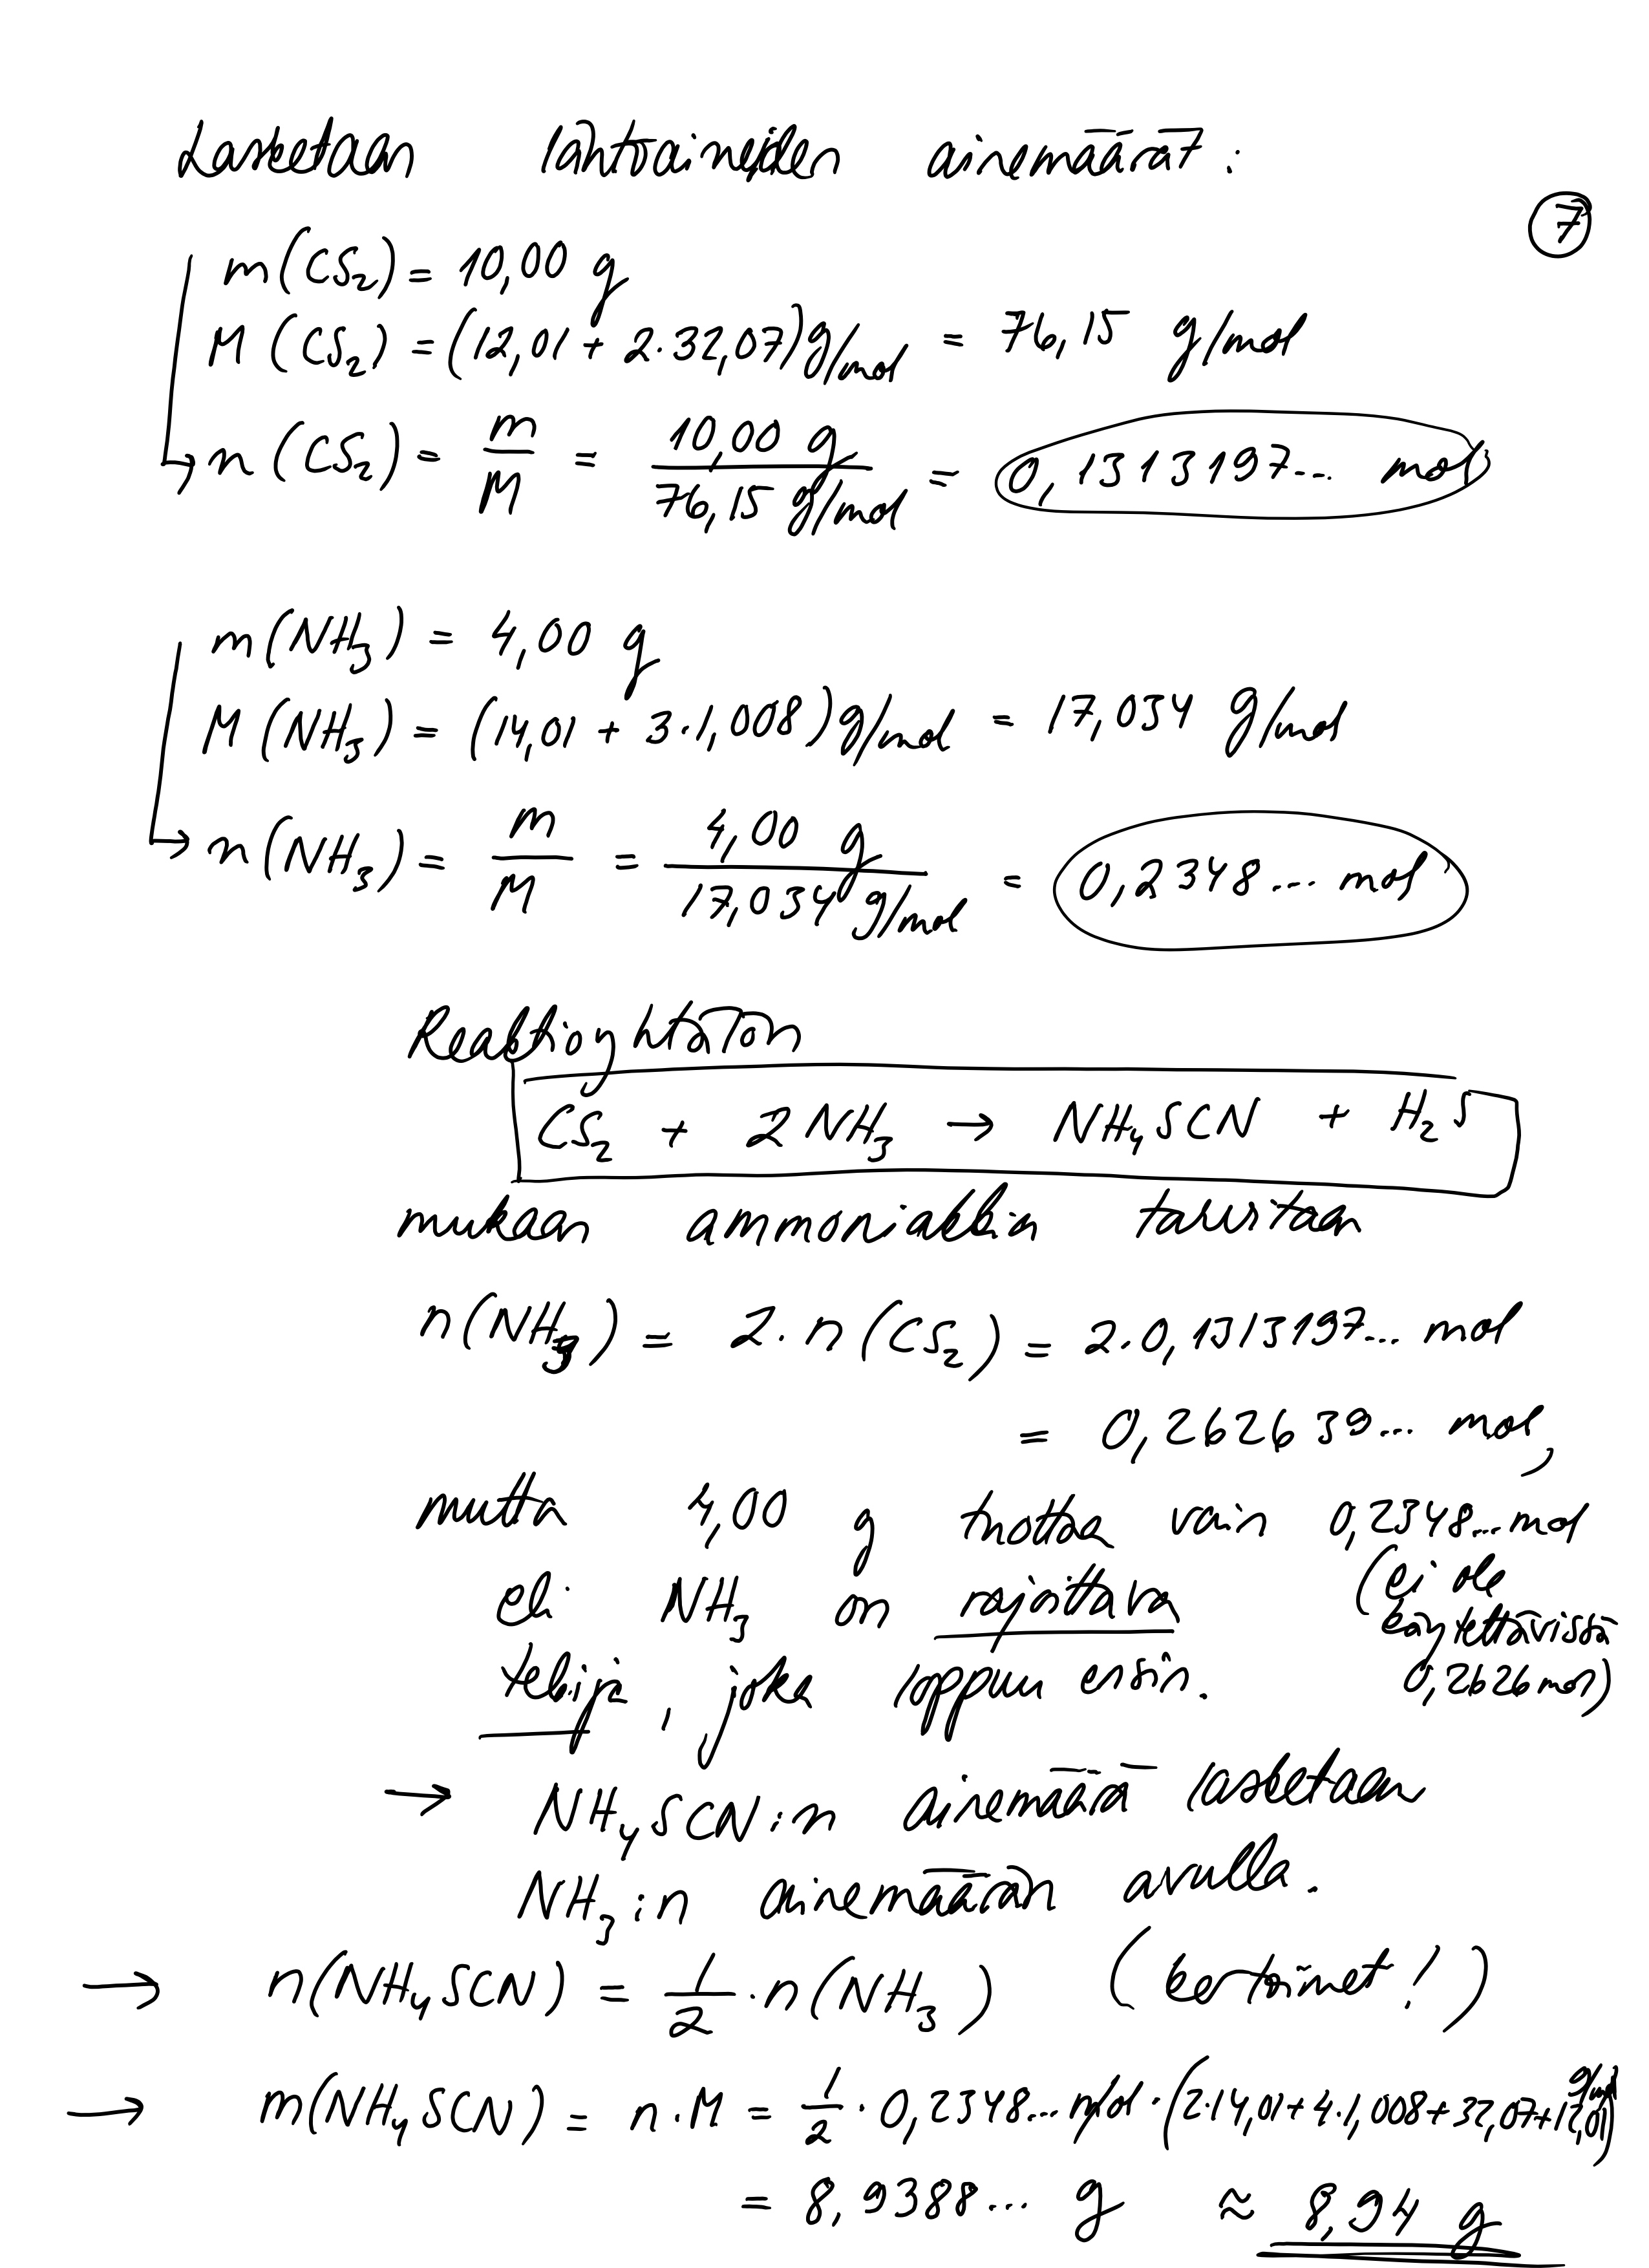 Lasketaan lähtöaineiden ainemäärät:
7
m(CS₂) = 10,00 g
M(CS₂) = (12,01 + 2·32,07) g/mol = 76,15 g/mol
n(CS₂) = m/M = 10,00 g / 76,15 g/mol = 0,1313197... mol
m(NH₃) = 4,00 g
M(NH₃) = (14,01 + 3·1,008) g/mol = 17,034 g/mol
n(NH₃) = m/M = 4,00 g / 17,034 g/mol = 0,2348... mol
Reaktioyhtälön
CS₂ + 2 NH₃ → NH₄SCN + H₂S
mukaan ammoniakkia tarvitaan
n(NH₃) = 2·n(CS₂) = 2·0,1313197... mol
= 0,262639... mol,
mutta 4,00 g tuottaa vain 0,2348... mol
(ei ole
eli NH₃ on rajoittava
käytettävissä
tekijä, joka loppuu ensin.
0,2626 mol)
→ NH₄SCN:n ainemäärä lasketaan
NH₃:n ainemäärän avulla.
→ n(NH₄SCN) = 1/2 · n(NH₃) (kertoimet!)
→ m(NH₄SCN) = n·M = 1/2 · 0,2348... mol · (2·14,01 + 4·1,008 + 32,07 + 12,01) g/mol
= 8,9388... g ≈ 8,94 g